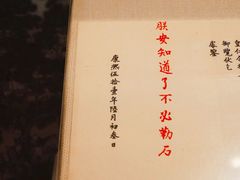 皇仁
御覽伏乞
睿鑒
朕安知道了不必勒石
康熙伍拾壹年陸月初叁日